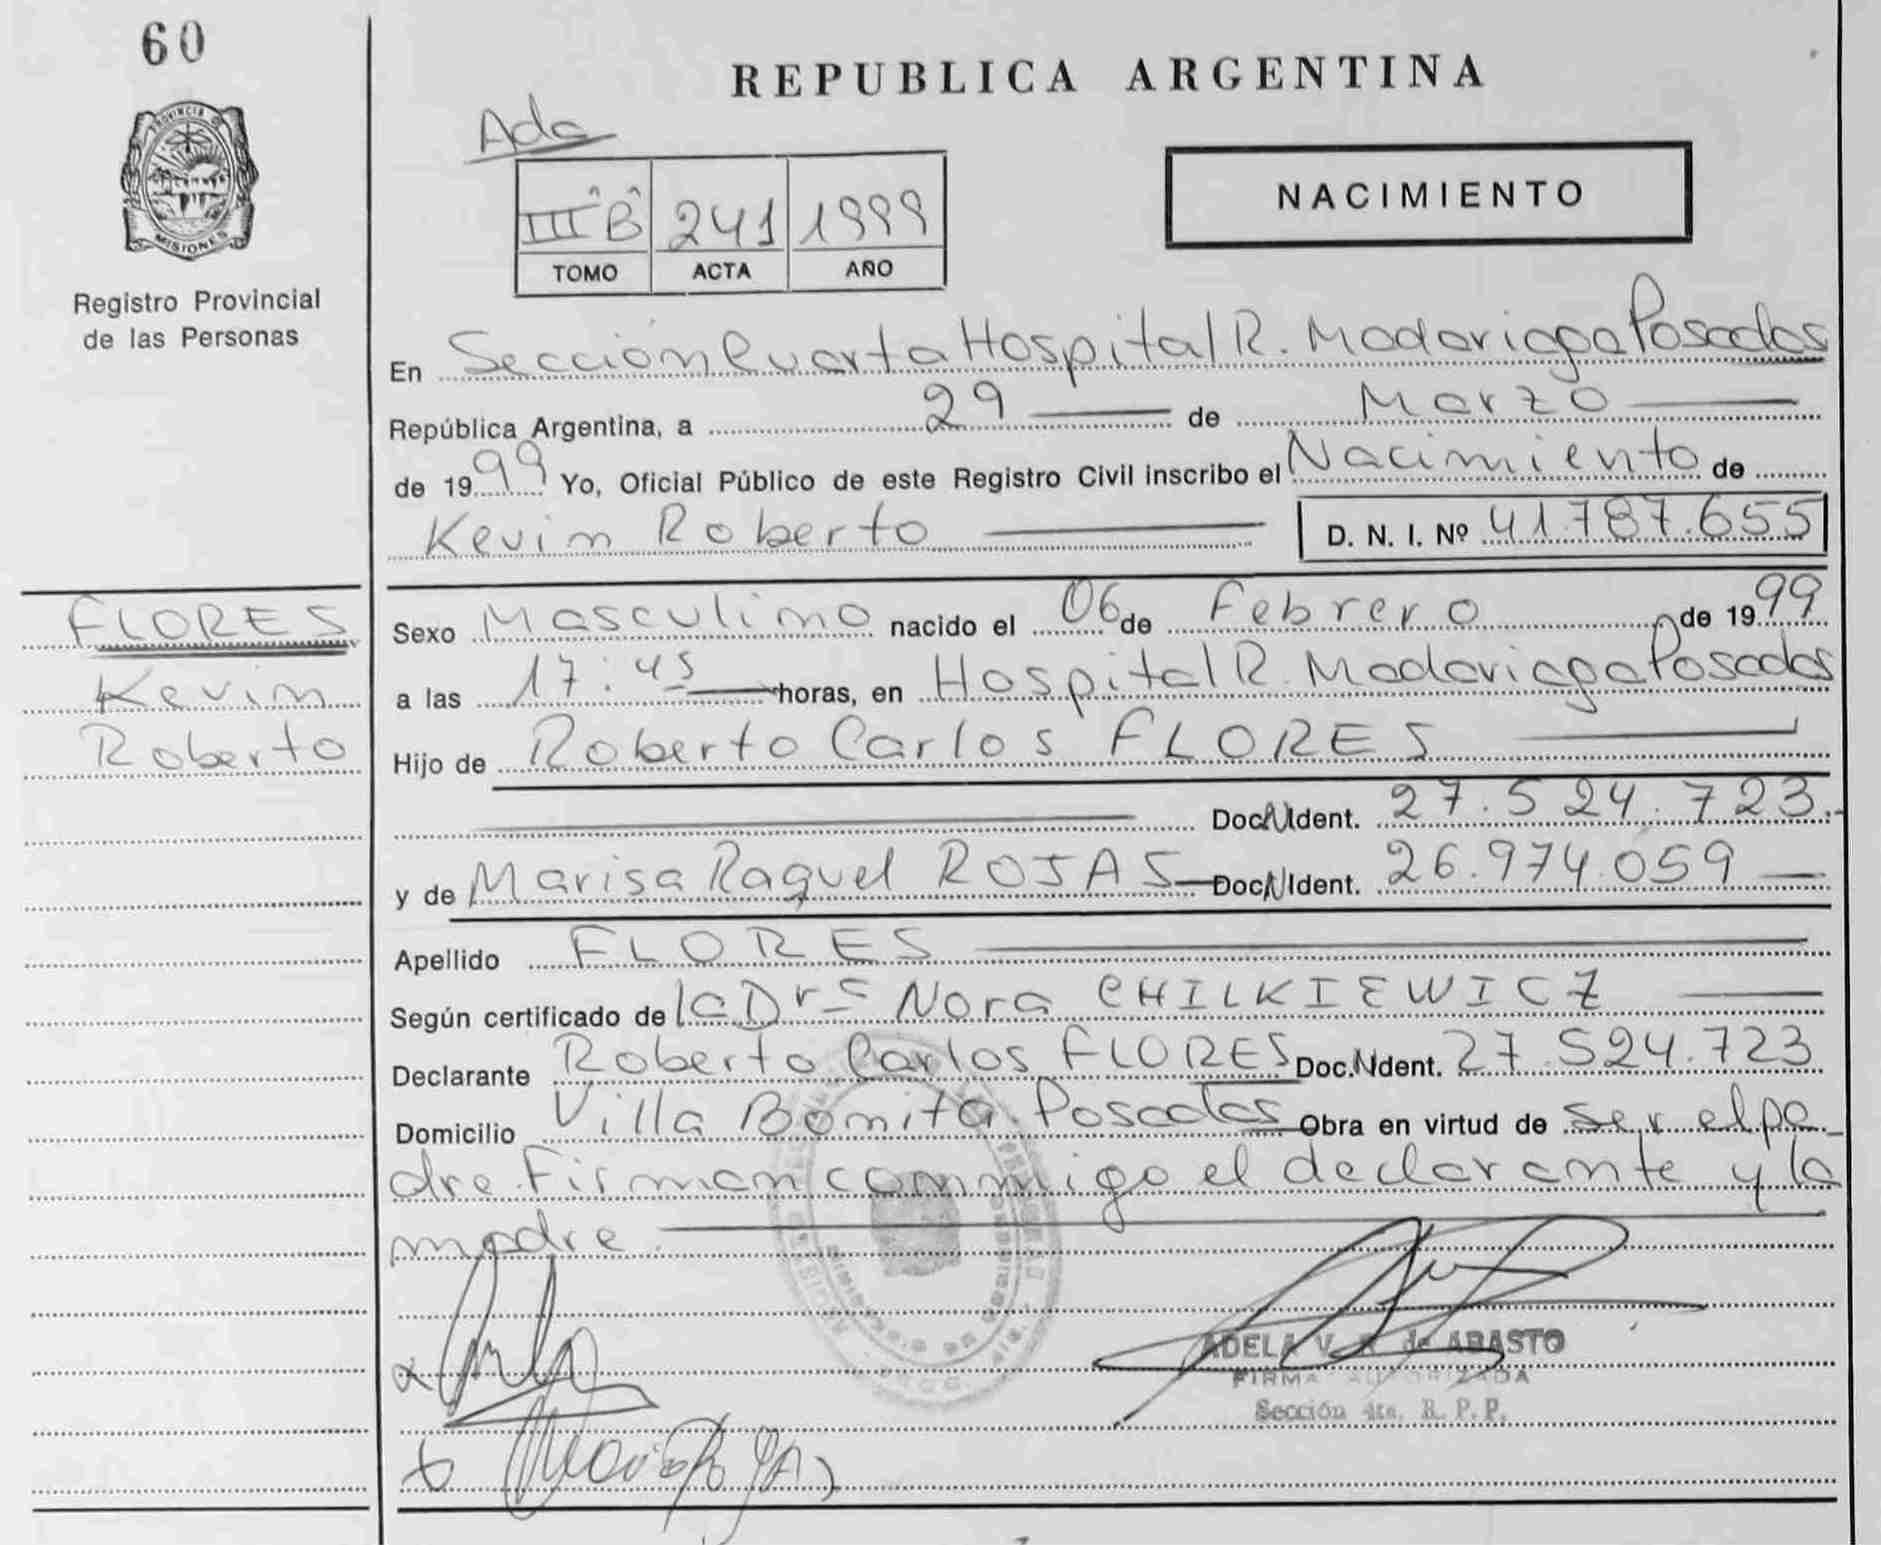 60
PROVINCIA DE
MISIONES
Registro Provincial
de las Personas
REPUBLICA ARGENTINA
Ada
III "B" 241 1999
TOMO ACTA AÑO
NACIMIENTO
En Sección Cuarta Hospital R. Madariaga Posadas
República Argentina, a 29 de Marzo
de 1999 Yo, Oficial Público de este Registro Civil inscribo el Nacimiento de
Kevin Roberto D. N. I. Nº 41.787.655
FLORES
Kevin
Roberto
Sexo Masculino nacido el 06 de Febrero de 1999
a las 17:45 horas, en Hospital R. Madariaga Posadas
Hijo de Roberto Carlos FLORES
Doc. N. Ident. 27.524.723.-
y de Marisa Raquel ROJAS Doc. N. Ident. 26.974.059
Apellido FLORES
Según certificado de la Dra Nora CHILKIEWICZ
Declarante Roberto Carlos FLORES Doc. N. Ident. 27.524.723
Domicilio Villa Bonita Posadas Obra en virtud de ser el pa-
dre. Firman conmigo el declarante y la
madre.
ADELA V. de ABASTO
FIRMA AUTORIZADA
Sección 4ta. R. P. P.